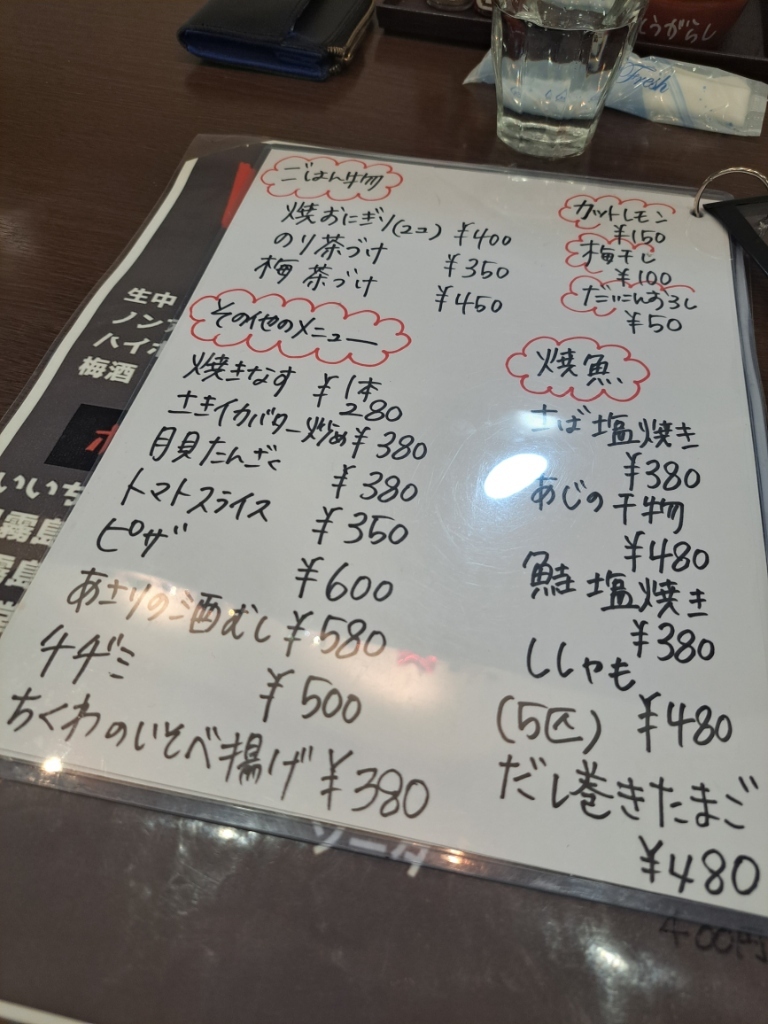 うがらし
Fresh
ごはん物
焼おにぎり(2コ) ¥400
のり茶づけ ¥350
梅茶づけ ¥450
カットレモン
¥150
梅干し
¥100
だいこんおろし
¥50
その他のメニュー
焼きなす ¥1本280
さきイカバター炒め ¥380
月貝たんざく ¥380
トマトスライス ¥350
ピザ ¥600
あさりの酒むし ¥580
チヂミ ¥500
ちくわのいそべ揚げ ¥380
焼魚
さば塩焼き
¥380
あじの干物
¥480
鮭塩焼き
¥380
ししゃも
(5匹) ¥480
だし巻きたまご
¥480
生中
ノン
ハイボ
梅酒
いいち
霧島
ソーダ
400円